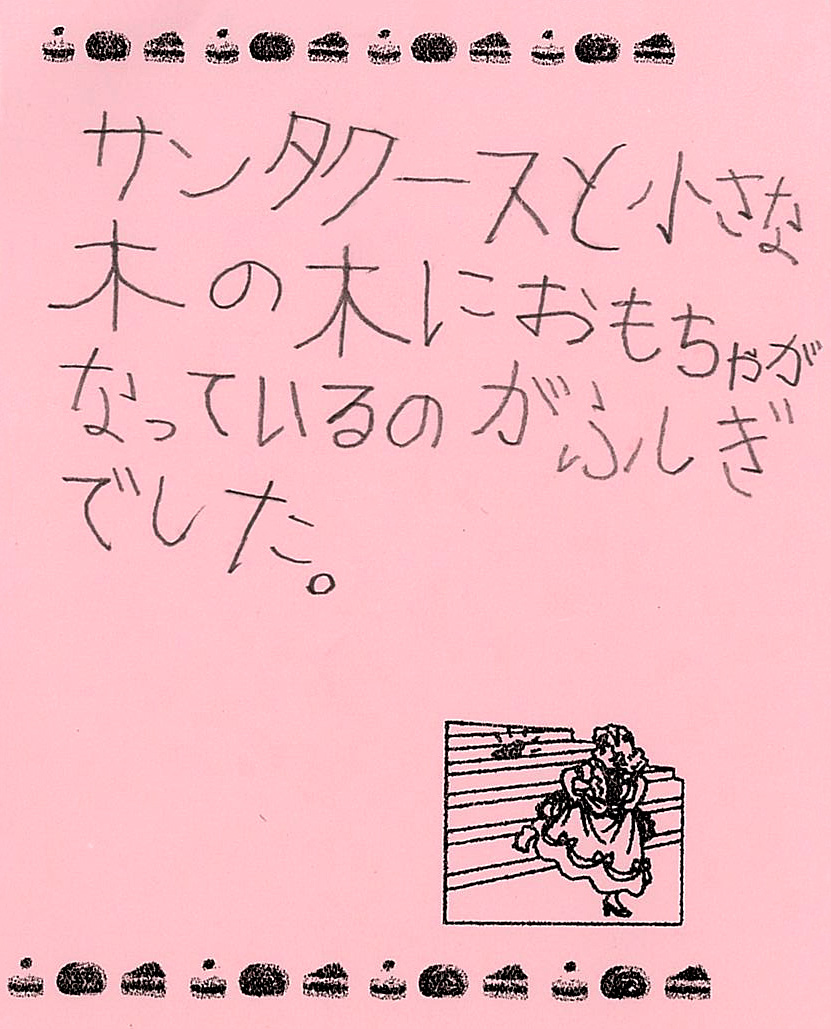 サンタクースと小さな
木の木におもちゃが
なっているのがふしぎ
でした。